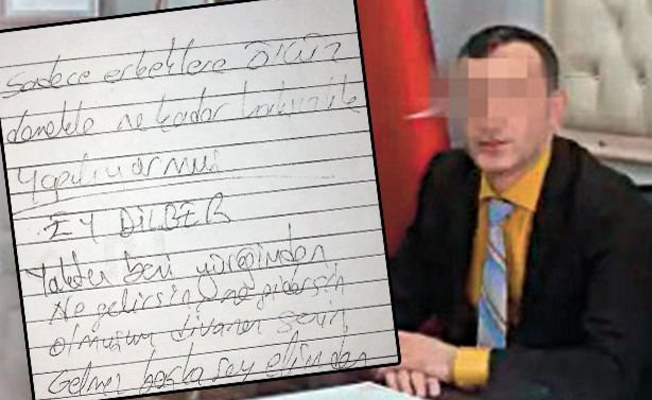 Sadece erkeklere ÖKÜZ
demekle ne kadar haksızlık
yapılıyormuş
EY DİLBER
Yaktın beni yüreğimden
Ne gelirsin ne gidersin
olmuşum divanen senin
Gelmez başka şey elimden